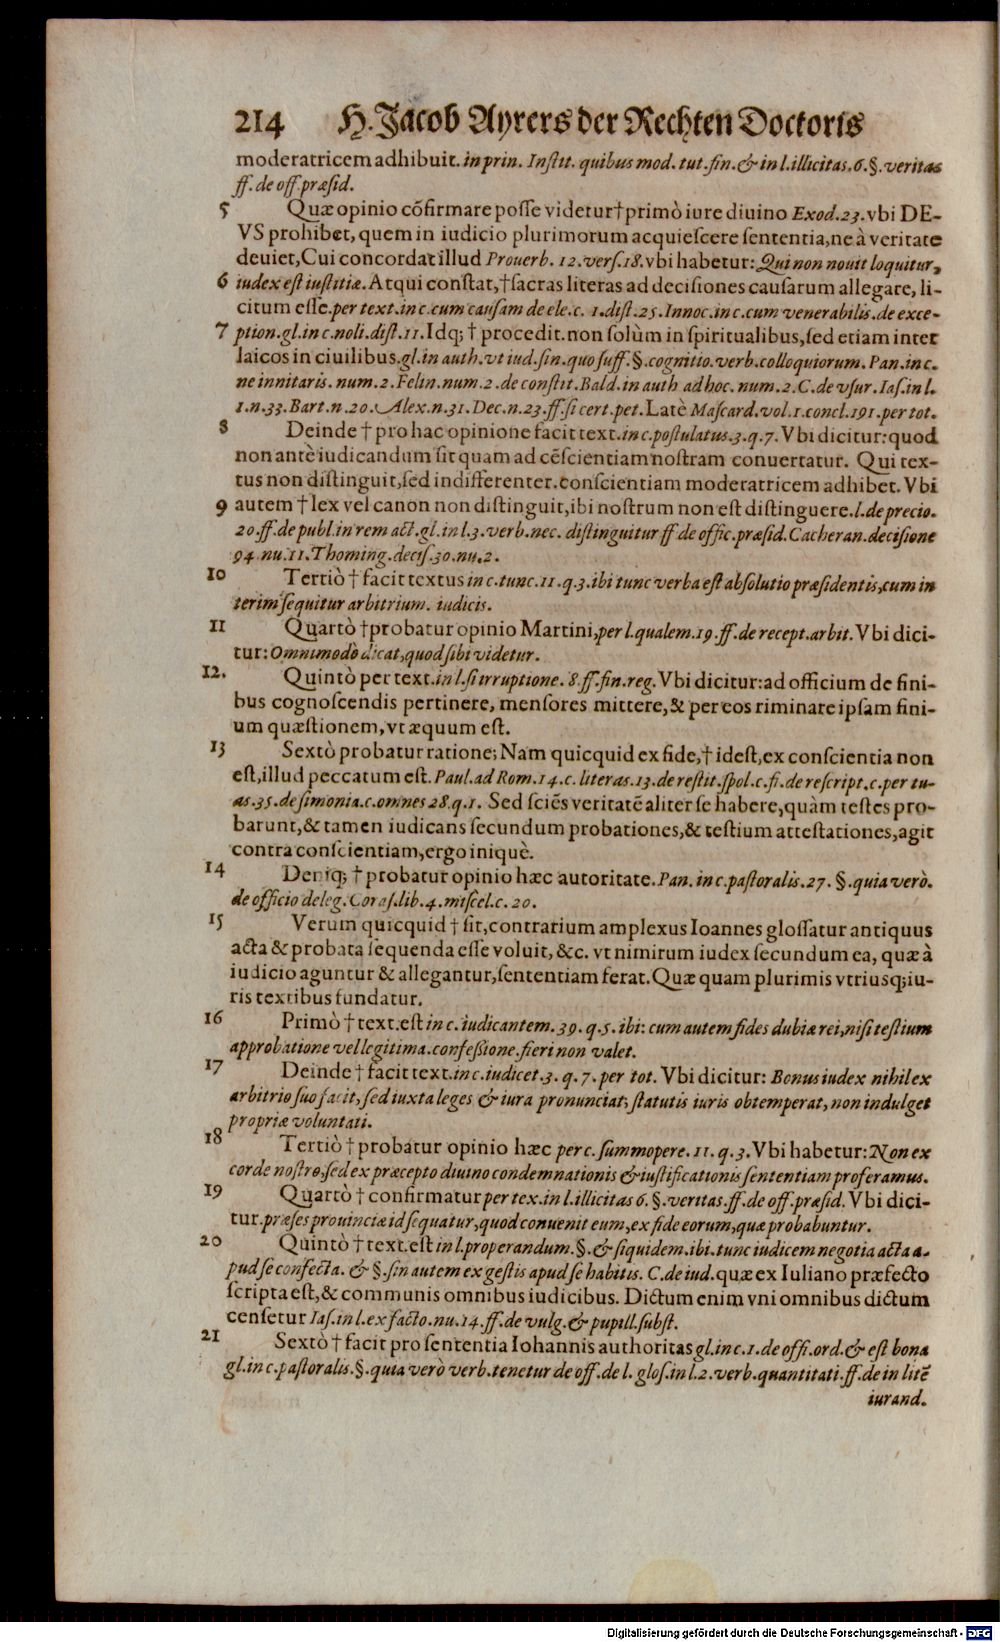 214 H. Jacob Ayrers der Rechten Doctoris
moderatricem adhibuit. in prin. Instit. quibus mod. tut. fin. & in l. illicitas. 6. §. veritas
ff. de off. præsid.
5 Quæ opinio cõfirmare posse videtur † primò iure diuino Exod. 23. vbi DE-
VS prohibet, quem in iudicio plurimorum acquiescere sententia, ne à veritate
deuiet, Cui concordat illud Prouerb. 12. vers. 18. vbi habetur: Qui non nouit loquitur,
6 iudex est iustitiæ. Atqui constat, † sacras literas ad decisiones causarum allegare, li-
citum esse. per text. in c. cum causam de ele. c. 1. dist. 25. Innoc. in c. cum venerabilis. de exce-
7 ption. gl. in c. noli. dist. 11. Idq; † procedit. non solùm in spiritualibus, sed etiam inter
laicos in ciuilibus. gl. in auth. vt iud. sin. quo suff. §. cognitio. verb. colloquiorum. Pan. in c.
ne innitaris. num. 2. Felin. num. 2. de constit. Bald. in auth ad hoc. num. 2. C. de vsur. Ias. in l.
1. n. 33. Bart. n. 20. Alex. n. 31. Dec. n. 23. ff. si cert. pet. Latè Mascard. vol. 1. concl. 191. per tot.
8 Deinde † pro hac opinione facit text. in c. postulatus. 3. q. 7. Vbi dicitur: quod
non antè iudicandum sit quam ad cẽscientiam nostram conuertatur. Qui tex-
tus non distinguit, sed indifferenter. conscientiam moderatricem adhibet. Vbi
9 autem † lex vel canon non distinguit, ibi nostrum non est distinguere. l. de precio.
20. ff. de publ. in rem act. gl. in l. 3. verb. nec. distinguitur ff. de offic. præsid. Cacheran. decisione
94. nu. 11. Thoming. decis. 30. nu. 2.
10 Tertiò † facit textus in c. tunc. 11. q. 3. ibi tunc verba est absolutio præsidentis, cum in
terim sequitur arbitrium. iudicis.
11 Quartò † probatur opinio Martini, per l. qualem. 19. ff. de recept. arbit. Vbi dici-
tur: Omnimodò dicat, quod sibi videtur.
12. Quintò per text. in l. si irruptione. 8. ff. fin. reg. Vbi dicitur: ad officium de fini-
bus cognoscendis pertinere, mensores mittere, & per eos riminare ipsam fini-
um quæstionem, vt æquum est.
13 Sextò probatur ratione; Nam quicquid ex fide, † id est, ex conscientia non
est, illud peccatum est. Paul. ad Rom. 14. c. literas. 13. de restit. spol. c. fi. de rescript. c. per tu-
as. 35. de simonia. c. omnes 28. q. 1. Sed sciẽs veritatẽ aliter se habere, quàm testes pro-
barunt, & tamen iudicans secundum probationes, & testium attestationes, agit
contra conscientiam, ergo iniquè.
14 Deniq; † probatur opinio hæc autoritate. Pan. in c. pastoralis. 27. §. quia verò.
de officio deleg. Coras. lib. 4. miscel. c. 20.
15 Verum quicquid † sit, contrarium amplexus Ioannes glossatur antiquus
acta & probata sequenda esse voluit, &c. vt nimirum iudex secundum ea, quæ à
iudicio aguntur & allegantur, sententiam ferat. Quæ quam plurimis vtriusq; iu-
ris textibus fundatur.
16 Primò † text. est in c. iudicantem. 39. q. 5. ibi: cum autem fides dubiæ rei, nisi testium
approbatione vel legitima. confeßione. fieri non valet.
17 Deinde † facit text. in c. iudicet. 3. q. 7. per tot. Vbi dicitur: Bonus iudex nihil ex
arbitrio suo facit, sed iuxta leges & iura pronunciat, statutis iuris obtemperat, non indulget
propriæ voluntati.
18 Tertiò † probatur opinio hæc per c. summopere. 11. q. 3. Vbi habetur: Non ex
corde nostro, sed ex præcepto diuino condemnationis & iustificationis sententiam proferamus.
19 Quartò † confirmatur per tex. in l. illicitas 6. §. veritas. ff. de off. præsid. Vbi dici-
tur. præses prouinciæ id sequatur, quod conuenit eum, ex fide eorum, quæ probabuntur.
20 Quintò † text. est in l. properandum. §. & siquidem. ibi. tunc iudicem negotia acta a-
pud se confecta. & §. sin autem ex gestis apud se habitis. C. de iud. quæ ex Iuliano præfecto
scripta est, & communis omnibus iudicibus. Dictum enim vni omnibus dictum
censetur Ias. in l. ex facto. nu. 14. ff. de vulg. & pupill. subst.
21 Sextò † facit pro sententia Iohannis authoritas gl. in c. 1. de offi. ord. & est bona
gl. in c. pastoralis. §. quia verò verb. tenetur de off. de l. glos. in l. 2. verb. quantitati. ff. de in litẽ
iurand.
Digitalisierung gefördert durch die Deutsche Forschungsgemeinschaft - DFG